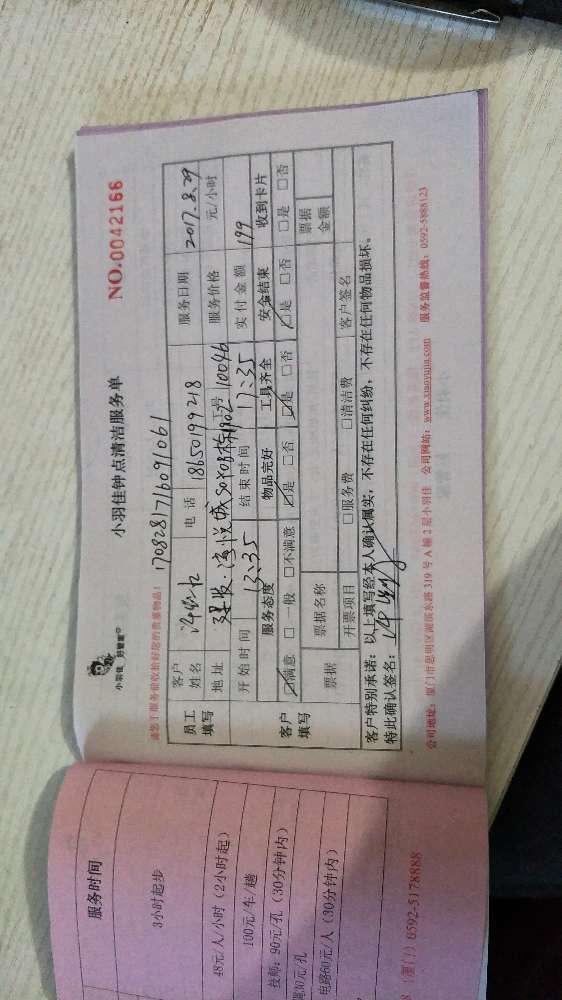 小羽佳 好管家
小羽佳钟点清洁服务单
NO.0042166
请您于服务前收拾好您的贵重物品!
1708281716091061
员工填写
客户姓名
电话 18650199218
服务日期 2017.8.29
地址
工号 10046
服务价格 元/小时
客户填写
开始时间 13:35
结束时间 17:35
实付金额 199
服务态度 物品完好 工具齐全 安全结束 收到卡片
☑满意 □一般 □不满意 ☑是 □否 ☑是 □否 ☑是 □否 □是 □否
票据
票据名称
票据金额
开票项目 □服务费 □清洁费 客户签名
客户特别承诺:以上填写经本人确认属实,不存在任何纠纷,不存在任何物品损坏。
特此确认签名:
公司地址:厦门市思明区湖滨东路319号A幢2层小羽佳 公司网站:www.xiaoyujia.com 服务监督热线:0592-5988123
服务时间
3小时起步
48元/人/小时(2小时起)
100元/车/趟
技师:90元/孔(30分钟内)
周30元/孔
电路60元/人(30分钟内)
8(厦门)0592-5178888